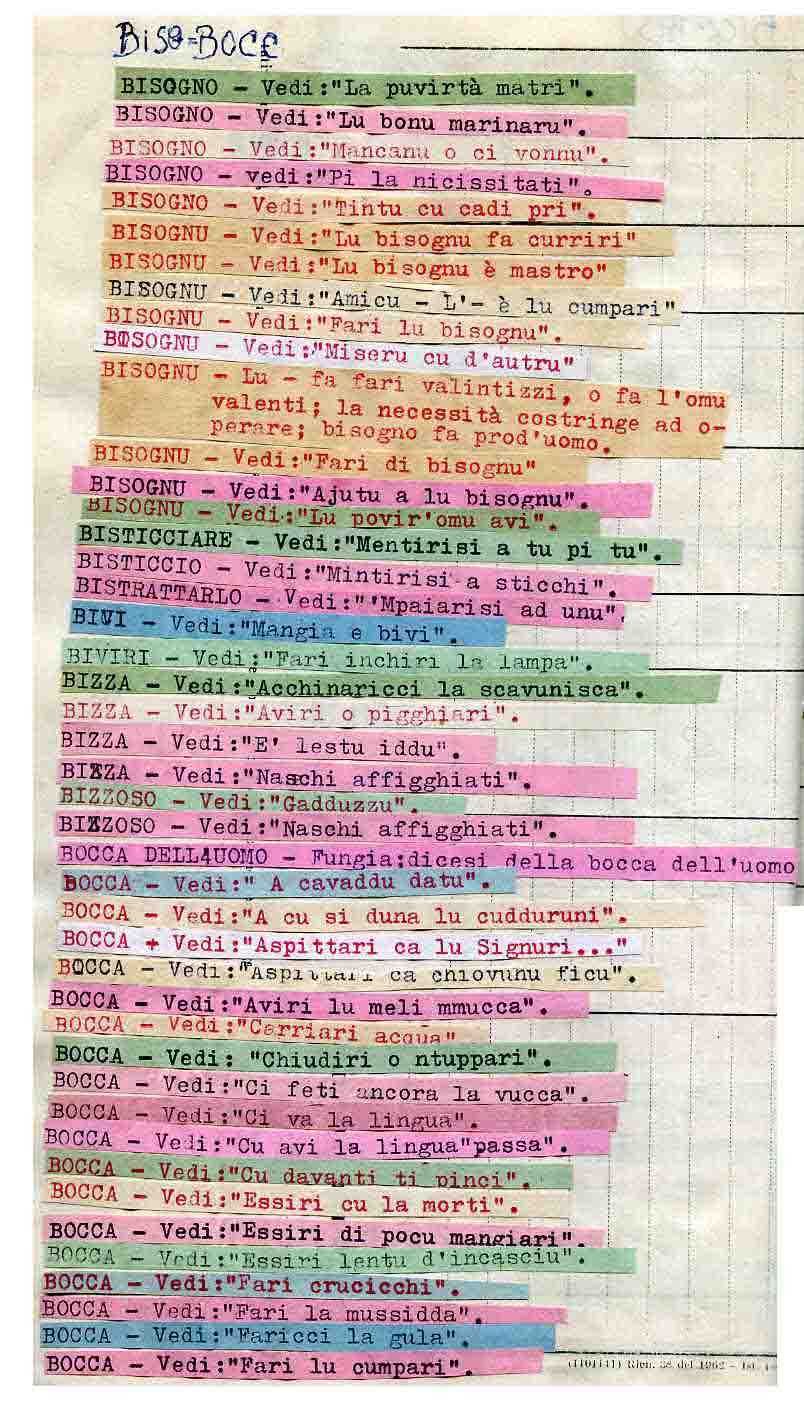 BISO=BOCC
BISOGNO - Vedi:"La puvirtà matri".
BISOGNO - Vedi:"Lu bonu marinaru".
BISOGNO - Vedi:"Mancanu o ci vonnu".
BISOGNO - vedi:"Pi la nicissitati".
BISOGNO - Vedi:"Tintu cu cadi pri".
BISOGNU - Vedi:"Lu bisognu fa curriri"
BISOGNU - Vedi:"Lu bisognu è mastro"
BISOGNU - Vedi:"Amicu - L'- è lu cumpari"
BISOGNU - Vedi:"Fari lu bisognu".
BOSOGNU - Vedi:"Miseru cu d'autru"
BISOGNU - Lu - fa fari valintizzi, o fa l'omu
valenti; la necessità costringe ad o-
perare; bisogno fa prod'uomo.
BISOGNU - Vedi:"Fari di bisognu"
BISOGNU - Vedi:"Ajutu a lu bisognu".
BISOGNU - Vedi:"Lu povir'omu avi".
BISTICCIARE - Vedi:"Mentirisi a tu pi tu".
BISTICCIO - Vedi:"Mintirisi a sticchi".
BISTRATTARLO - Vedi:"'Mpaiarisi ad unu".
BIVI - Vedi:"Mangia e bivi".
BIVIRI - Vedi:"Fari inchiri la lampa".
BIZZA - Vedi:"Acchinaricci la scavunisca".
BIZZA - Vedi:"Aviri o pigghiari".
BIZZA - Vedi:"E' lestu iddu".
BIZZA - Vedi:"Naschi affigghiati".
BIZZOSO - Vedi:"Gadduzzu".
BIZZOSO - Vedi:"Naschi affigghiati".
BOCCA DELL4UOMO - Fungia;dicesi della bocca dell'uomo
BOCCA - Vedi:" A cavaddu datu".
BOCCA - Vedi:"A cu si duna lu cudduruni".
BOCCA + Vedi:"Aspittari ca lu Signuri..."
BOCCA - Vedi:"Aspittari ca chiovunu ficu".
BOCCA - Vedi:"Aviri lu meli mmucca".
BOCCA - Vedi:"Carriari acqua"
BOCCA - Vedi: "Chiudiri o ntuppari".
BOCCA - Vedi:"Ci feti ancora la vucca".
BOCCA - Vedi:"Ci va la lingua".
BOCCA - Vedi:"Cu avi la lingua"passa".
BOCCA - Vedi:"Cu davanti ti pinci".
BOCCA - Vedi:"Essiri cu la morti".
BOCCA - Vedi:"Essiri di pocu mangiari".
BOCCA - Vedi:"Essiri lentu d'incasciu".
BOCCA - Vedi:"Fari crucicchi".
BOCCA - Vedi:"Fari la mussidda".
BOCCA - Vedi:"Faricci la gula".
BOCCA - Vedi:"Fari lu cumpari".
(1101141) Rich. 38 del 1962 -